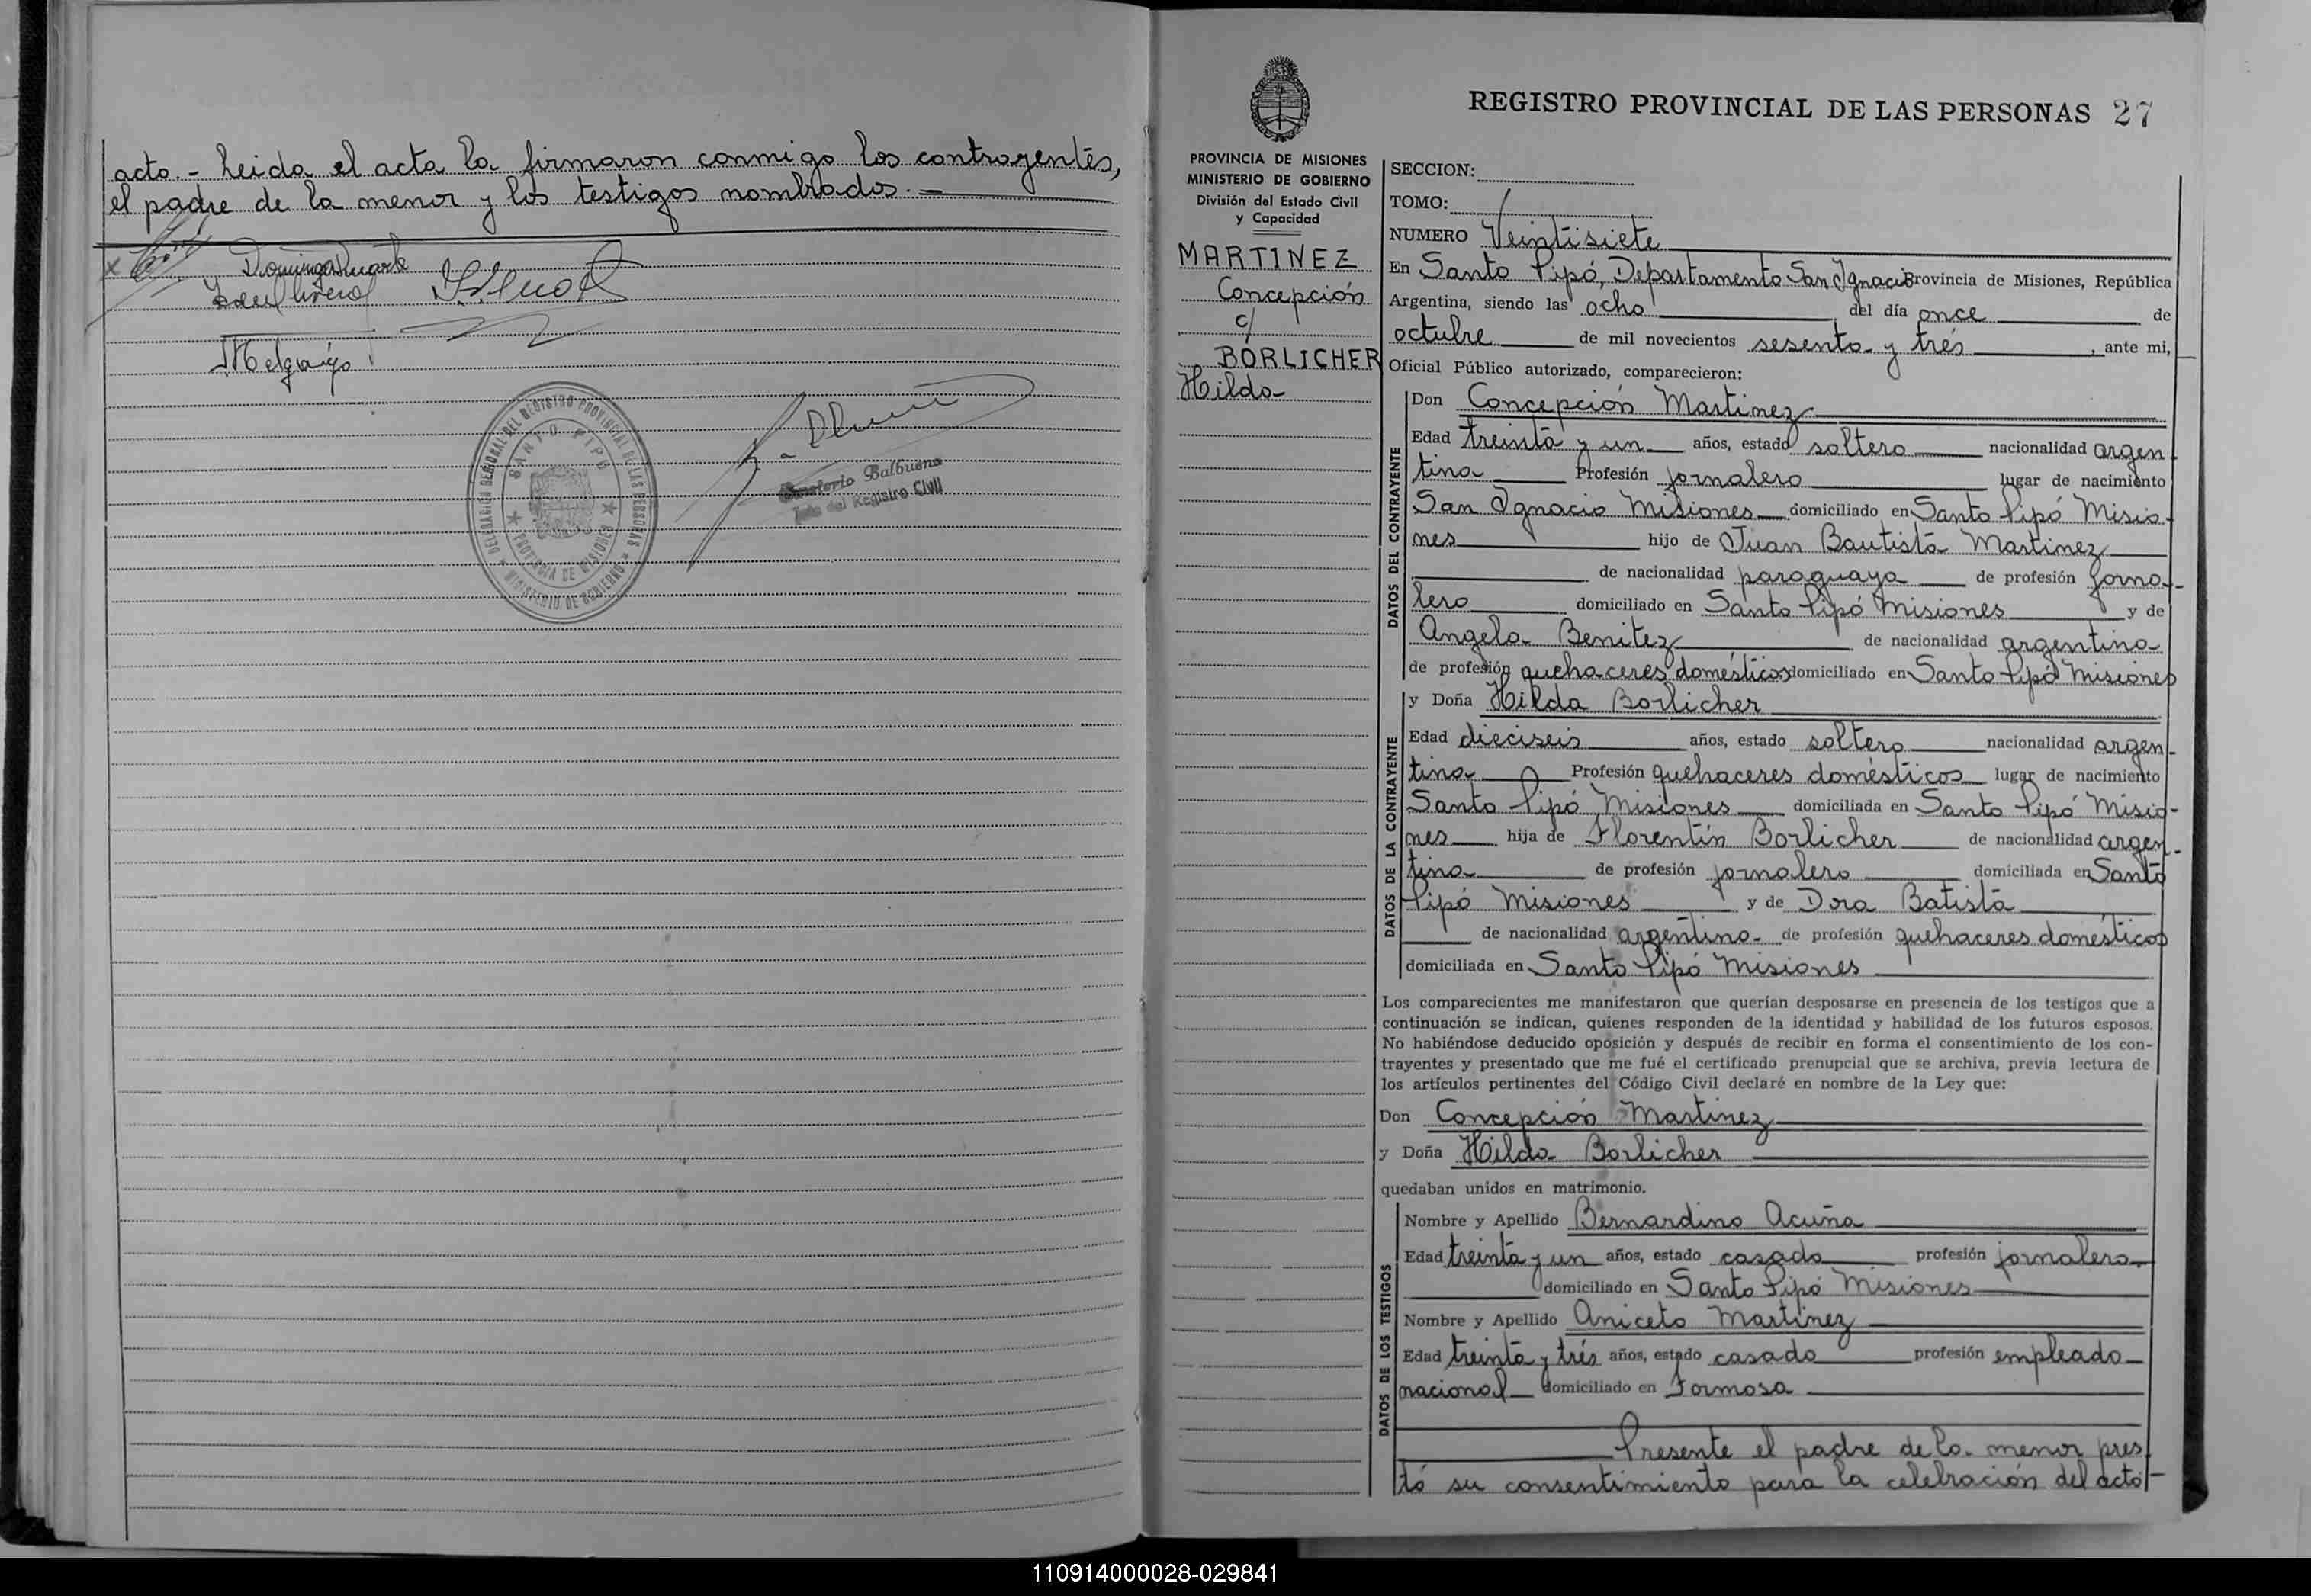 acto.- Leida el acta la firmaron conmigo los contrayentes,
el padre de la menor y los testigos nombrados.-
Dominga Duarte
Melgarejo
DELEGACION REGIONAL DEL REGISTRO PROVINCIAL DE LAS PERSONAS
MINISTERIO DE GOBIERNO
SANTO PIPO
PROVINCIA DE MISIONES
Balbuena
Jefe del Registro Civil
REGISTRO PROVINCIAL DE LAS PERSONAS 27
PROVINCIA DE MISIONES
MINISTERIO DE GOBIERNO
División del Estado Civil
y Capacidad
MARTINEZ
Concepción
c/
BORLICHER
Hilda
SECCION:
TOMO:
NUMERO Veintisiete
En Santo Pipó, Departamento San Ignacio Provincia de Misiones, República
Argentina, siendo las ocho del día once de
octubre de mil novecientos sesenta y tres, ante mi,
Oficial Público autorizado, comparecieron:
DATOS DEL CONTRAYENTE
Don Concepción Martinez
Edad treinta y un años, estado soltero nacionalidad argen
tina Profesión jornalero lugar de nacimiento
San Ignacio Misiones domiciliado en Santo Pipó Misio-
nes hijo de Juan Bautista Martinez
de nacionalidad paraguaya de profesión jorna-
lero domiciliado en Santo Pipó Misiones y de
Angela Benitez de nacionalidad argentina
de profesión quehaceres domésticos domiciliado en Santo Pipó Misiones
DATOS DE LA CONTRAYENTE
y Doña Hilda Borlicher
Edad dieciseis años, estado soltera nacionalidad argen-
tina Profesión quehaceres domésticos lugar de nacimiento
Santo Pipó Misiones domiciliada en Santo Pipó Misio-
nes hija de Florentín Borlicher de nacionalidad argen-
tina de profesión jornalero domiciliada en Santo
Pipó Misiones y de Dora Batista
de nacionalidad argentina de profesión quehaceres domésticos
domiciliada en Santo Pipó Misiones
Los comparecientes me manifestaron que querían desposarse en presencia de los testigos que a
continuación se indican, quienes responden de la identidad y habilidad de los futuros esposos.
No habiéndose deducido oposición y después de recibir en forma el consentimiento de los con-
trayentes y presentado que me fué el certificado prenupcial que se archiva, previa lectura de
los artículos pertinentes del Código Civil declaré en nombre de la Ley que:
Don Concepción Martinez
y Doña Hilda Borlicher
quedaban unidos en matrimonio.
DATOS DE LOS TESTIGOS
Nombre y Apellido Bernardino Acuña
Edad treinta y un años, estado casado profesión jornalero
domiciliado en Santo Pipó Misiones
Nombre y Apellido Aniceto Martinez
Edad treinta y tres años, estado casado profesión empleado
nacional domiciliado en Formosa
Presente el padre de la menor pres
tó su consentimiento para la celebración del acto-
110914000028-029841